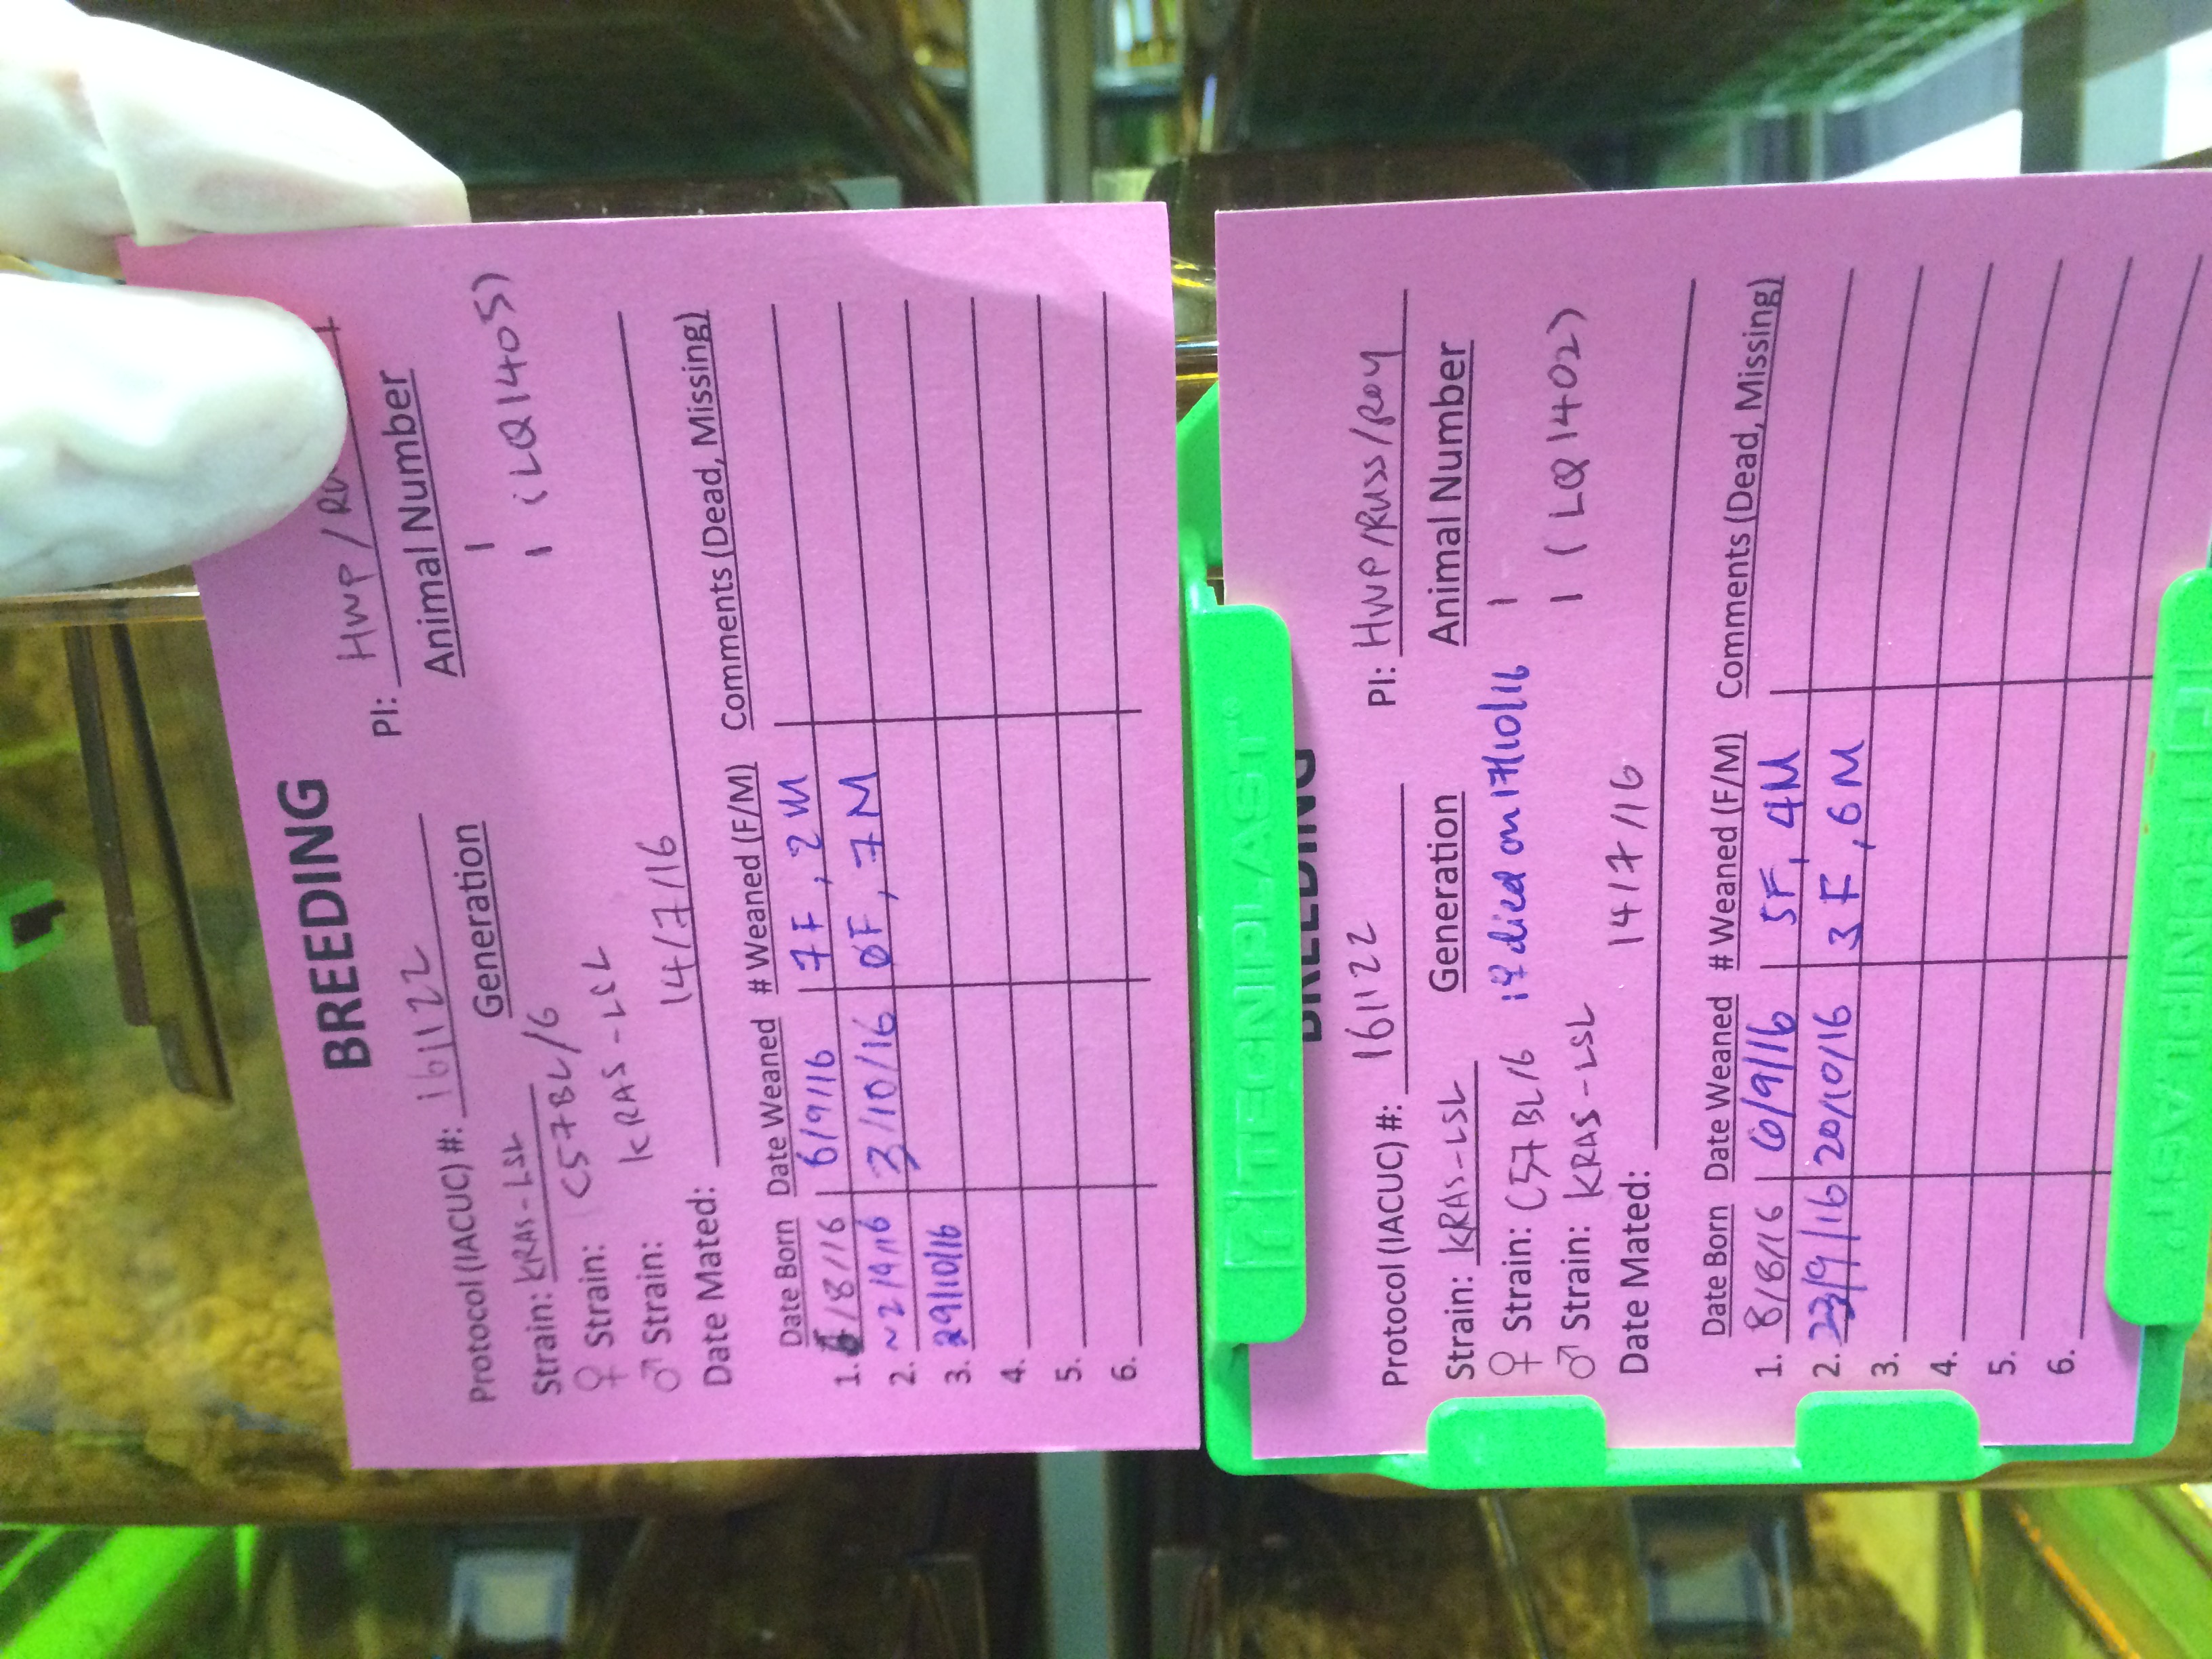 BREEDING
Protocol (IACUC) #: 161122 PI: HWP /
Strain: KRAS-LSL Generation Animal Number
♀ Strain: C57BL/6 1
♂ Strain: KRAS-LSL 1 (LQ1405)
Date Mated: 14/7/16
Date Born Date Weaned # Weaned (F/M) Comments (Dead, Missing)
1. /8/16 6/9/16 7F, 2M
2. 3/10/16 0F, 7M
3. 29/10/16
4.
5.
6.
BREEDING
Protocol (IACUC) #: 161122 PI: HWP/RUSS/ROY
Strain: KRAS-LSL Generation Animal Number
♀ Strain: C57BL/6 1♀ died on 17/10/16 1
♂ Strain: KRAS-LSL 1 (LQ1402)
Date Mated: 14/7/16
Date Born Date Weaned # Weaned (F/M) Comments (Dead, Missing)
1. 8/8/16 6/9/16 5F, 4M
2. 23/9/16 20/10/16 3F, 6M
3.
4.
5.
6.
TECNIPLAST
TECNIPLAST